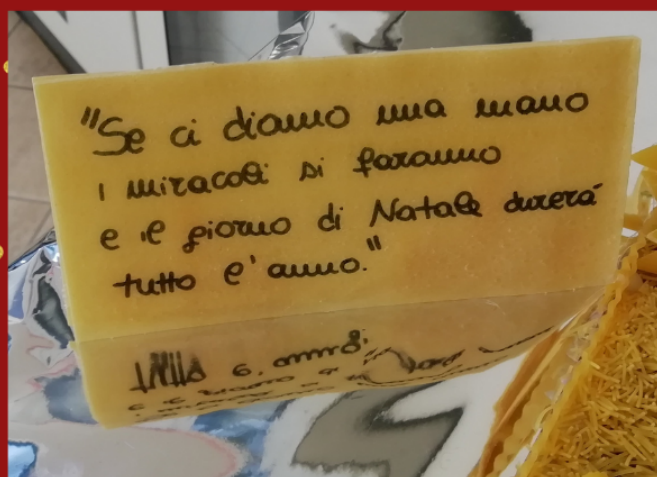 "Se ci diamo una mano
i miracoli si faranno
e il giorno di Natale durerà
tutto l'anno."